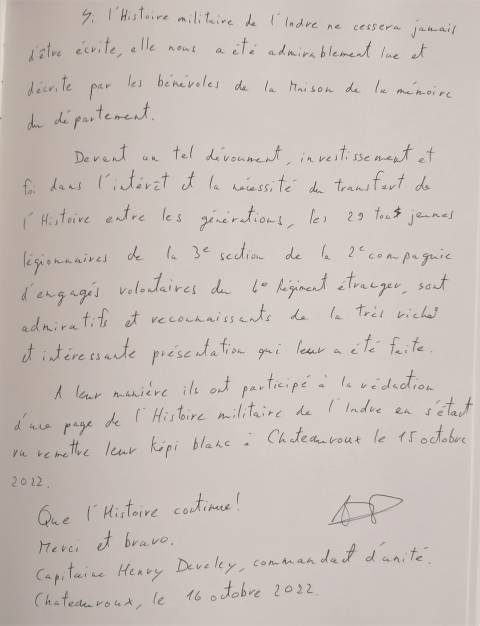 Si l'Histoire militaire de l'Indre ne cessera jamais
d'être écrite, elle nous a été admirablement lue et
décrite par les bénévoles de la Maison de la mémoire
du département.
Devant un tel dévoument, investissement et
foi dans l'intérêt et la nécessité du transfert de
l'Histoire entre les générations, les 29 tous jeunes
légionnaires de la 3e section de la 2e compagnie
d'engagés volontaires du Régiment étranger, sont
admiratifs et reconnaissants de la très riche
et intéressante présentation qui leur a été faite.
A leur manière ils ont participé à la rédaction
d'une page de l'Histoire militaire de l'Indre en s'étant
vu remettre leur képi blanc à Chateauroux le 15 octobre
2022.
Que l'Histoire continue!
Merci et bravo.
Capitaine Henry Develey, commandant d'unité.
Chateauroux, le 16 octobre 2022.